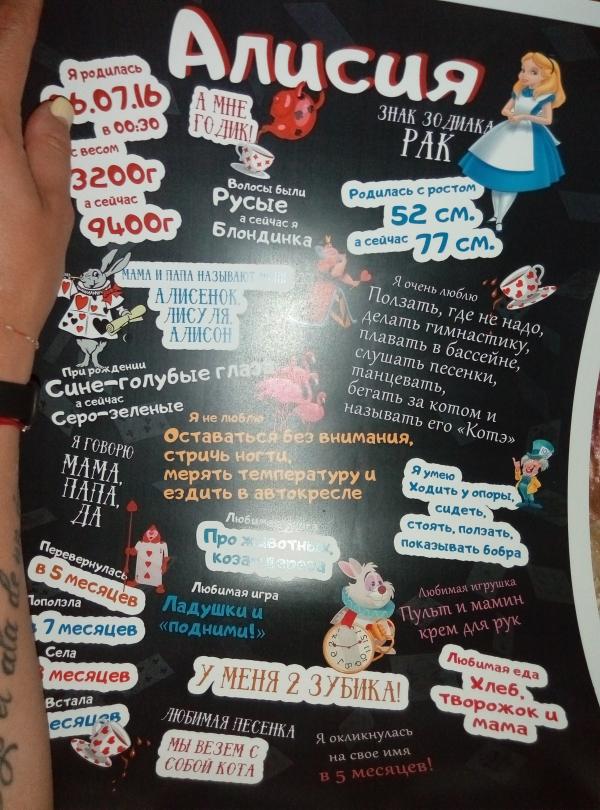 Алисия
Я родилась
6.07.16
в 00:30
с весом
3200г
а сейчас
9400г
А МНЕ
ГОДИК!
ЗНАК ЗОДИАКА
РАК
Волосы были
Русые
а сейчас я
Блондинка
Родилась с ростом
52 см.
а сейчас 77 см.
МАМА И ПАПА НАЗЫВАЮТ
АЛИСЕНОК,
ЛИСУЛЯ,
АЛИСОН
Я очень люблю
Ползать, где не надо,
делать гимнастику,
плавать в бассейне,
слушать песенки,
танцевать,
бегать за котом и
называть его «Котэ»
При рождении
Сине-голубые глаза
а сейчас
Серо-зеленые
Я не люблю
Оставаться без внимания,
стричь ногти,
мерять температуру и
ездить в автокресле
Я ГОВОРЮ
МАМА,
ПАПА,
ДА
Я умею
Ходить у опоры,
сидеть,
стоять, ползать,
показывать бобра
Про животных,
Перевернулась
в 5 месяцев
Поползла
7 месяцев
Села
месяцев
Встала
месяцев
Любимая игра
Ладушки и
«подними!»
Любимая игрушка
Пульт и мамин
крем для рук
У МЕНЯ 2 ЗУБИКА!
Любимая еда
Хлеб,
творожок и
мама
ЛЮБИМАЯ ПЕСЕНКА
МЫ ВЕЗЕМ С
СОБОЙ КОТА
Я окликнулась
на свое имя
в 5 месяцев!